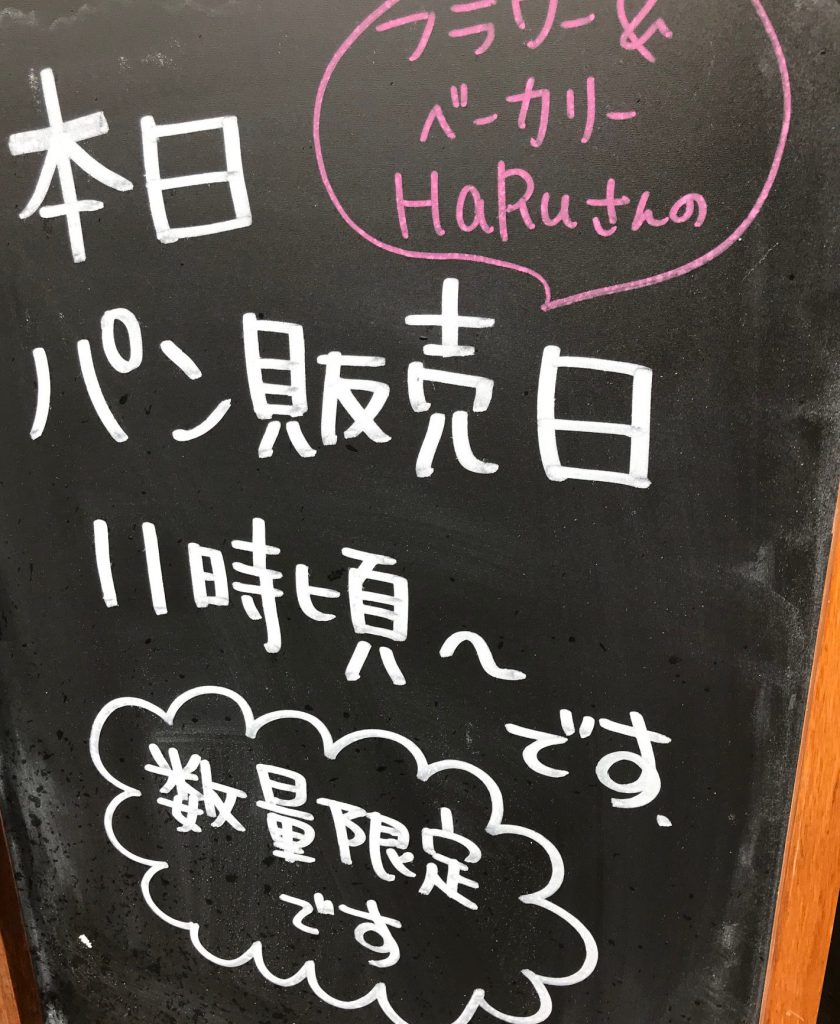 フラワー&
ベーカリー
HaRuさんの
本日
パン販売日
11時頃〜
です.
数量限定
です